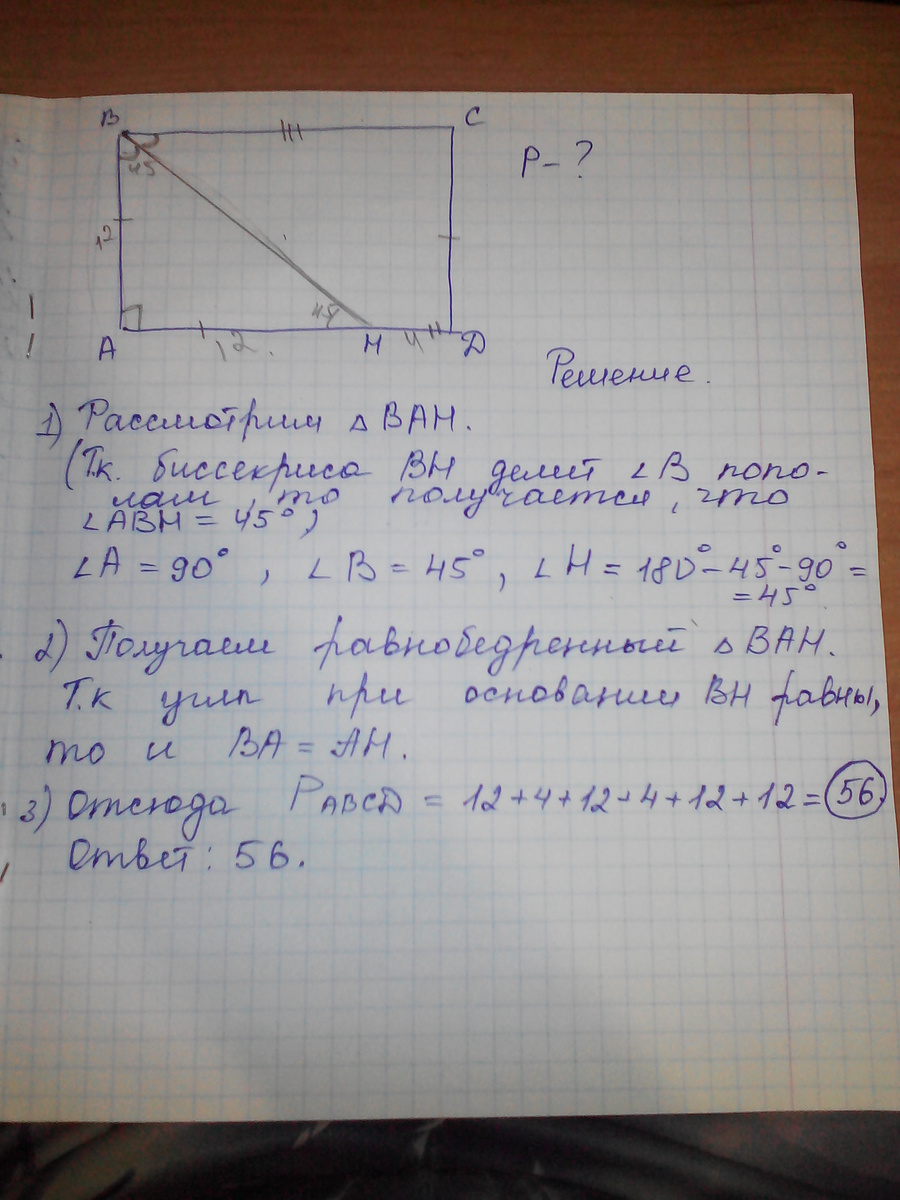 B
C
P - ?
45
12
45
A
12.
H
4
D
Решение.
1) Рассмотрим △ BAH.
(Т.к. биссекриса BH делит ∠B попо-
лам, то получается, что
∠ABH = 45°)
∠A = 90°, ∠B = 45°, ∠H = 180° - 45° - 90° =
= 45°
2) Получаем равнобедренный △ BAH.
Т.к углы при основании BH равны,
то и BA = AH.
3) Отсюда PABCD = 12+4+12+4+12+12 = 56
Ответ: 56.